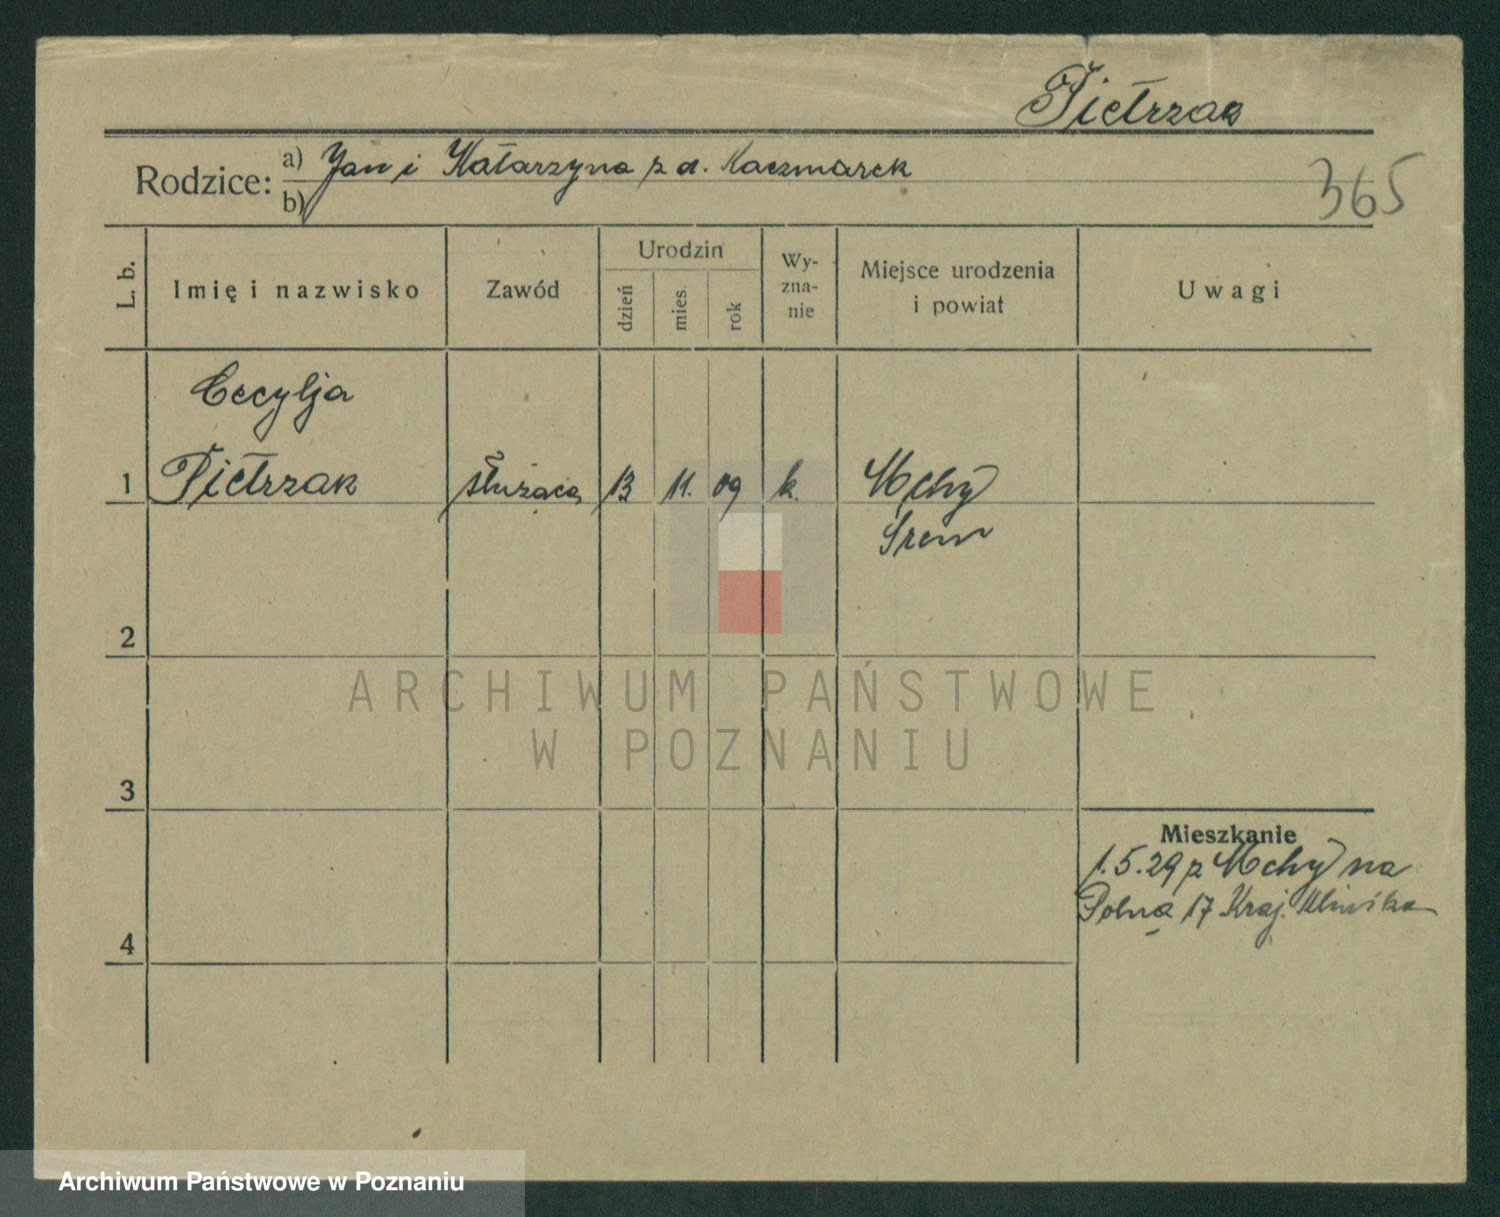 Pietrzak
Rodzice: a) Jan i Katarzyna z d. Kaczmarek
b)
365
L. b.
Imię i nazwisko
Zawód
Urodzin
dzień
mies.
rok
Wy-
zna-
nie
Miejsce urodzenia
i powiat
Uwagi
Cecylja
1 Pietrzak służąca 13 11. 09 k. Mchy
Śrem
2
ARCHIWUM PAŃSTWOWE
W POZNANIU
3
Mieszkanie
1.5.29 z Mchy na
Polną 17 Kraj. Klinika
4
Archiwum Państwowe w Poznaniu